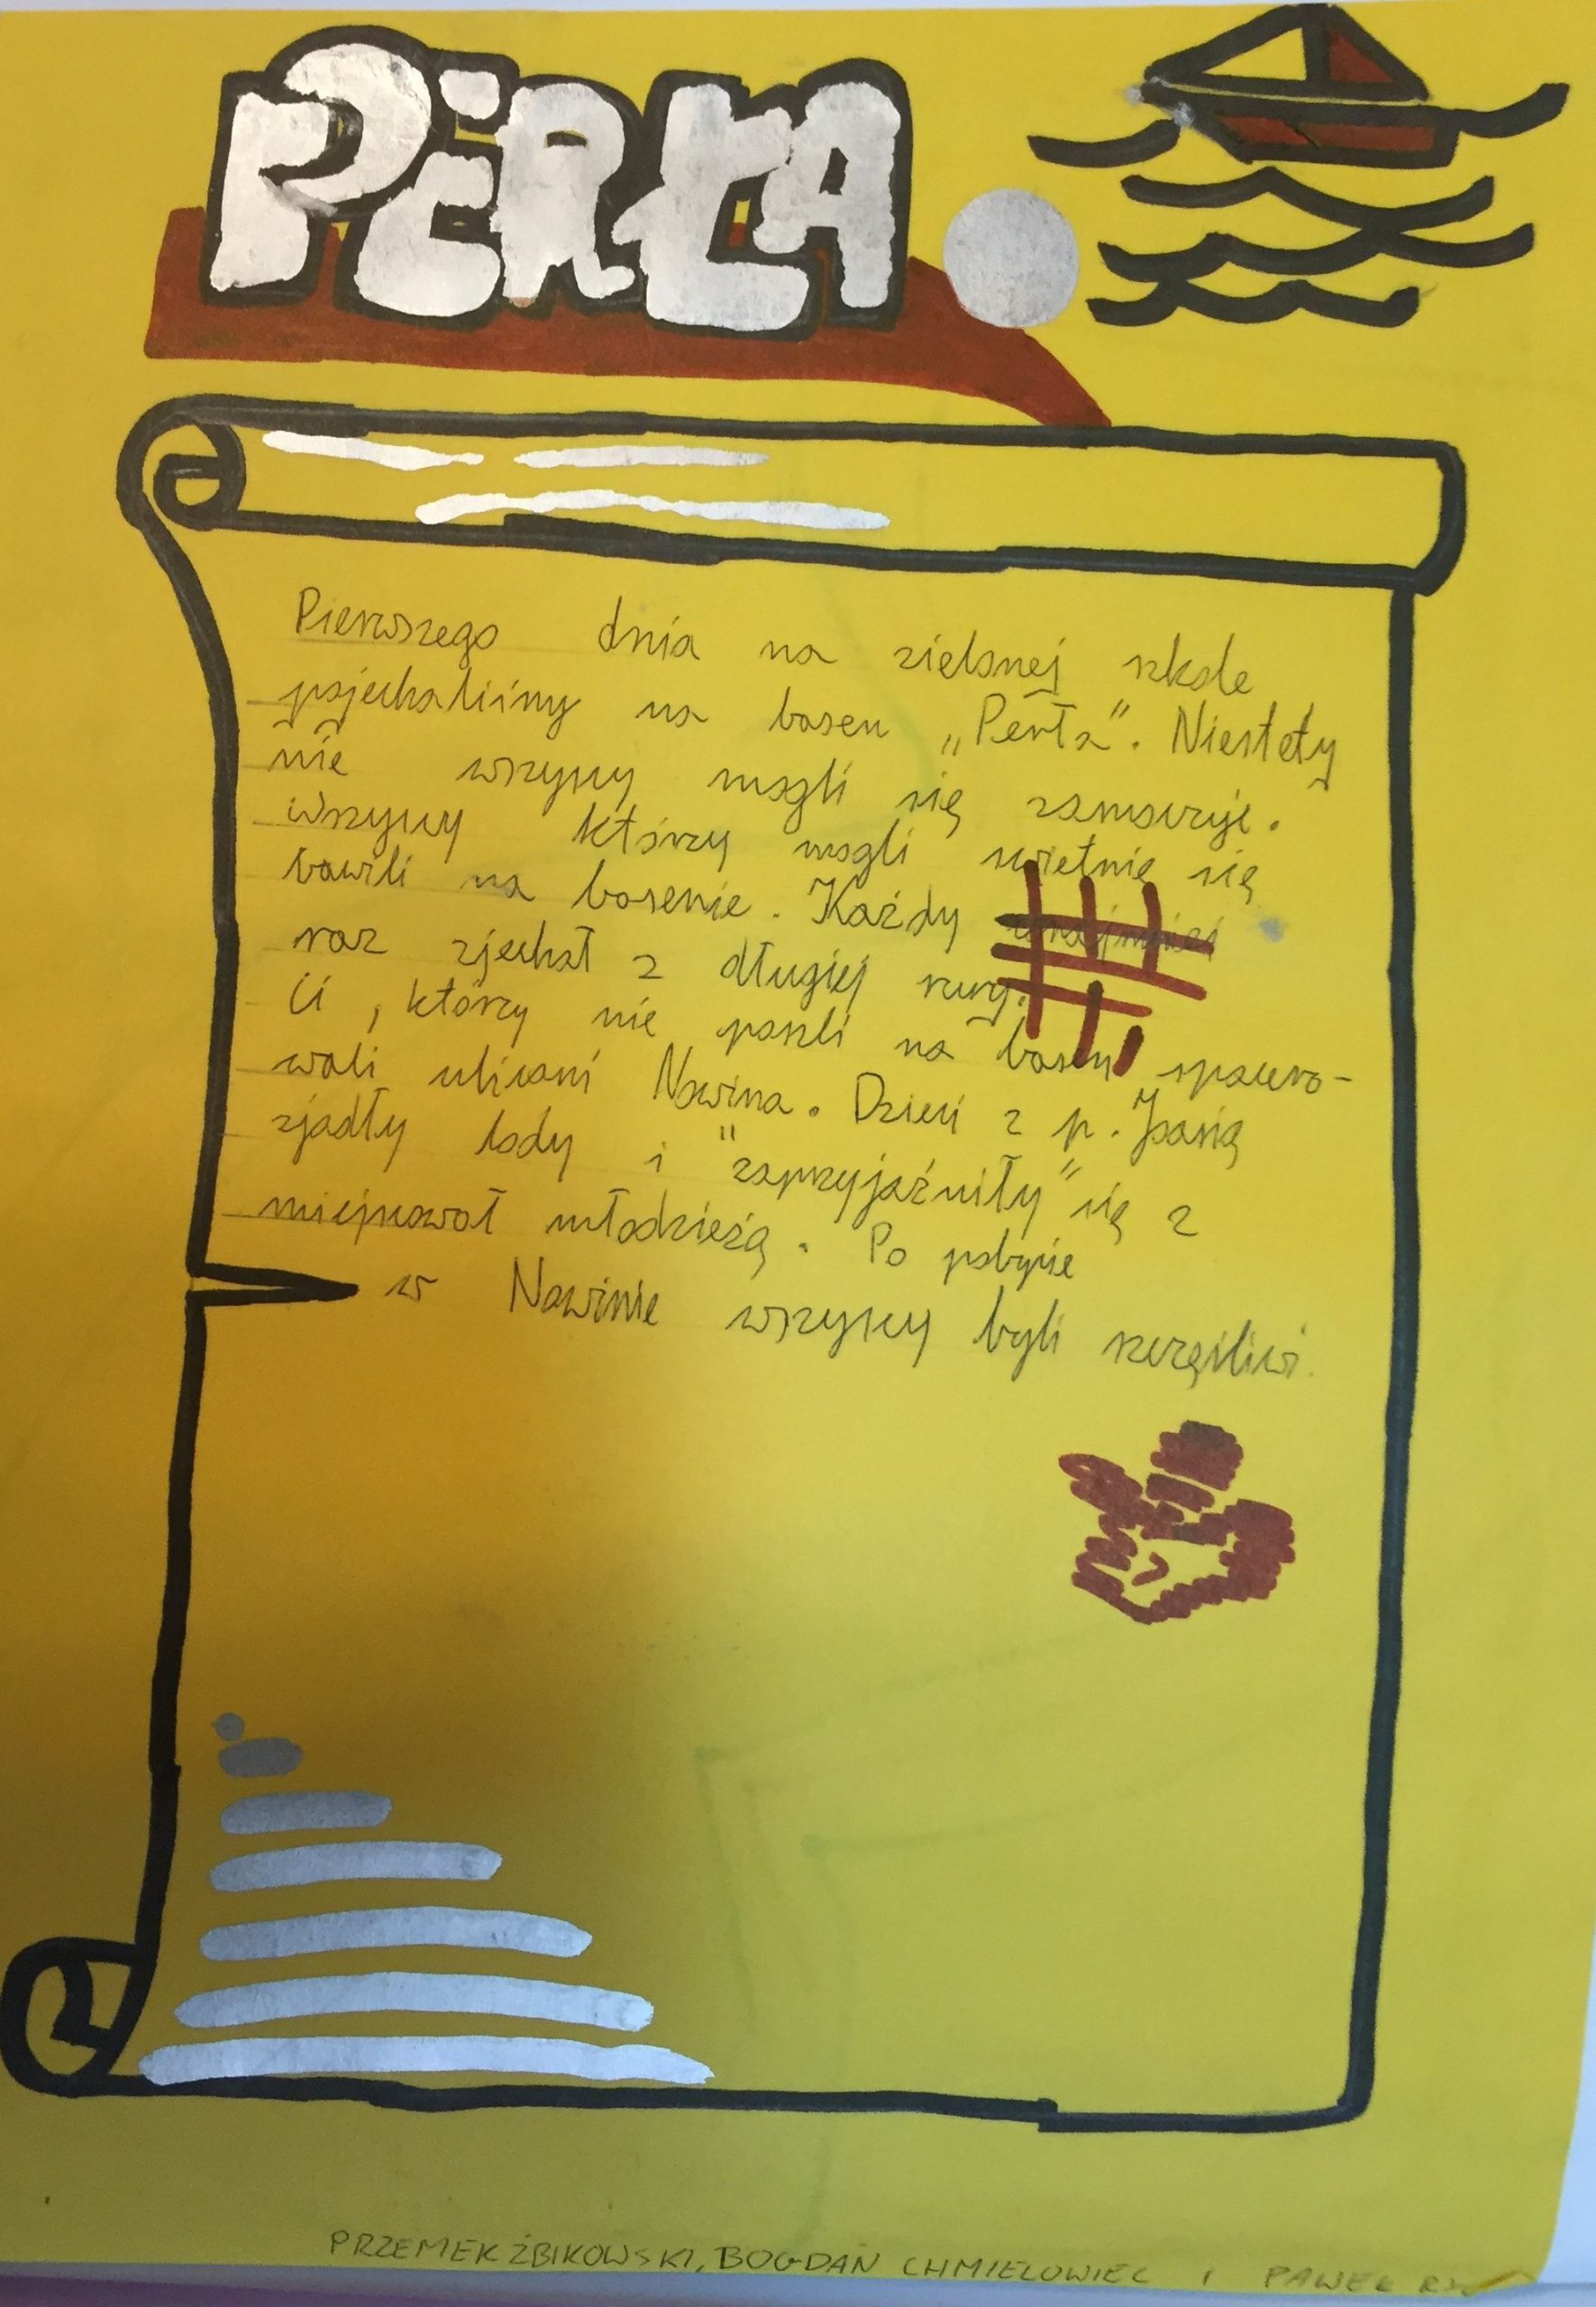 PERŁA
Pierwszego dnia na zielonej szkole
pojechaliśmy na basen „Perła”. Niestety
nie wszyscy mogli się zamoczyć.
Wszyscy którzy mogli świetnie się
bawili na basenie. Każdy
raz zjechał z długiej rury.
Ci , którzy nie poszli na basen spacero-
wali ulicami Nowina. Dzieci z p. Joasią
zjadły lody i "zaprzyjaźniły" się z
miejscową młodzieżą. Po pobycie
w Nowinie wszyscy byli szczęśliwi.
PRZEMEK ŻBIKOWSKI, BOGDAN CHMIELOWIEC I PAWEŁ